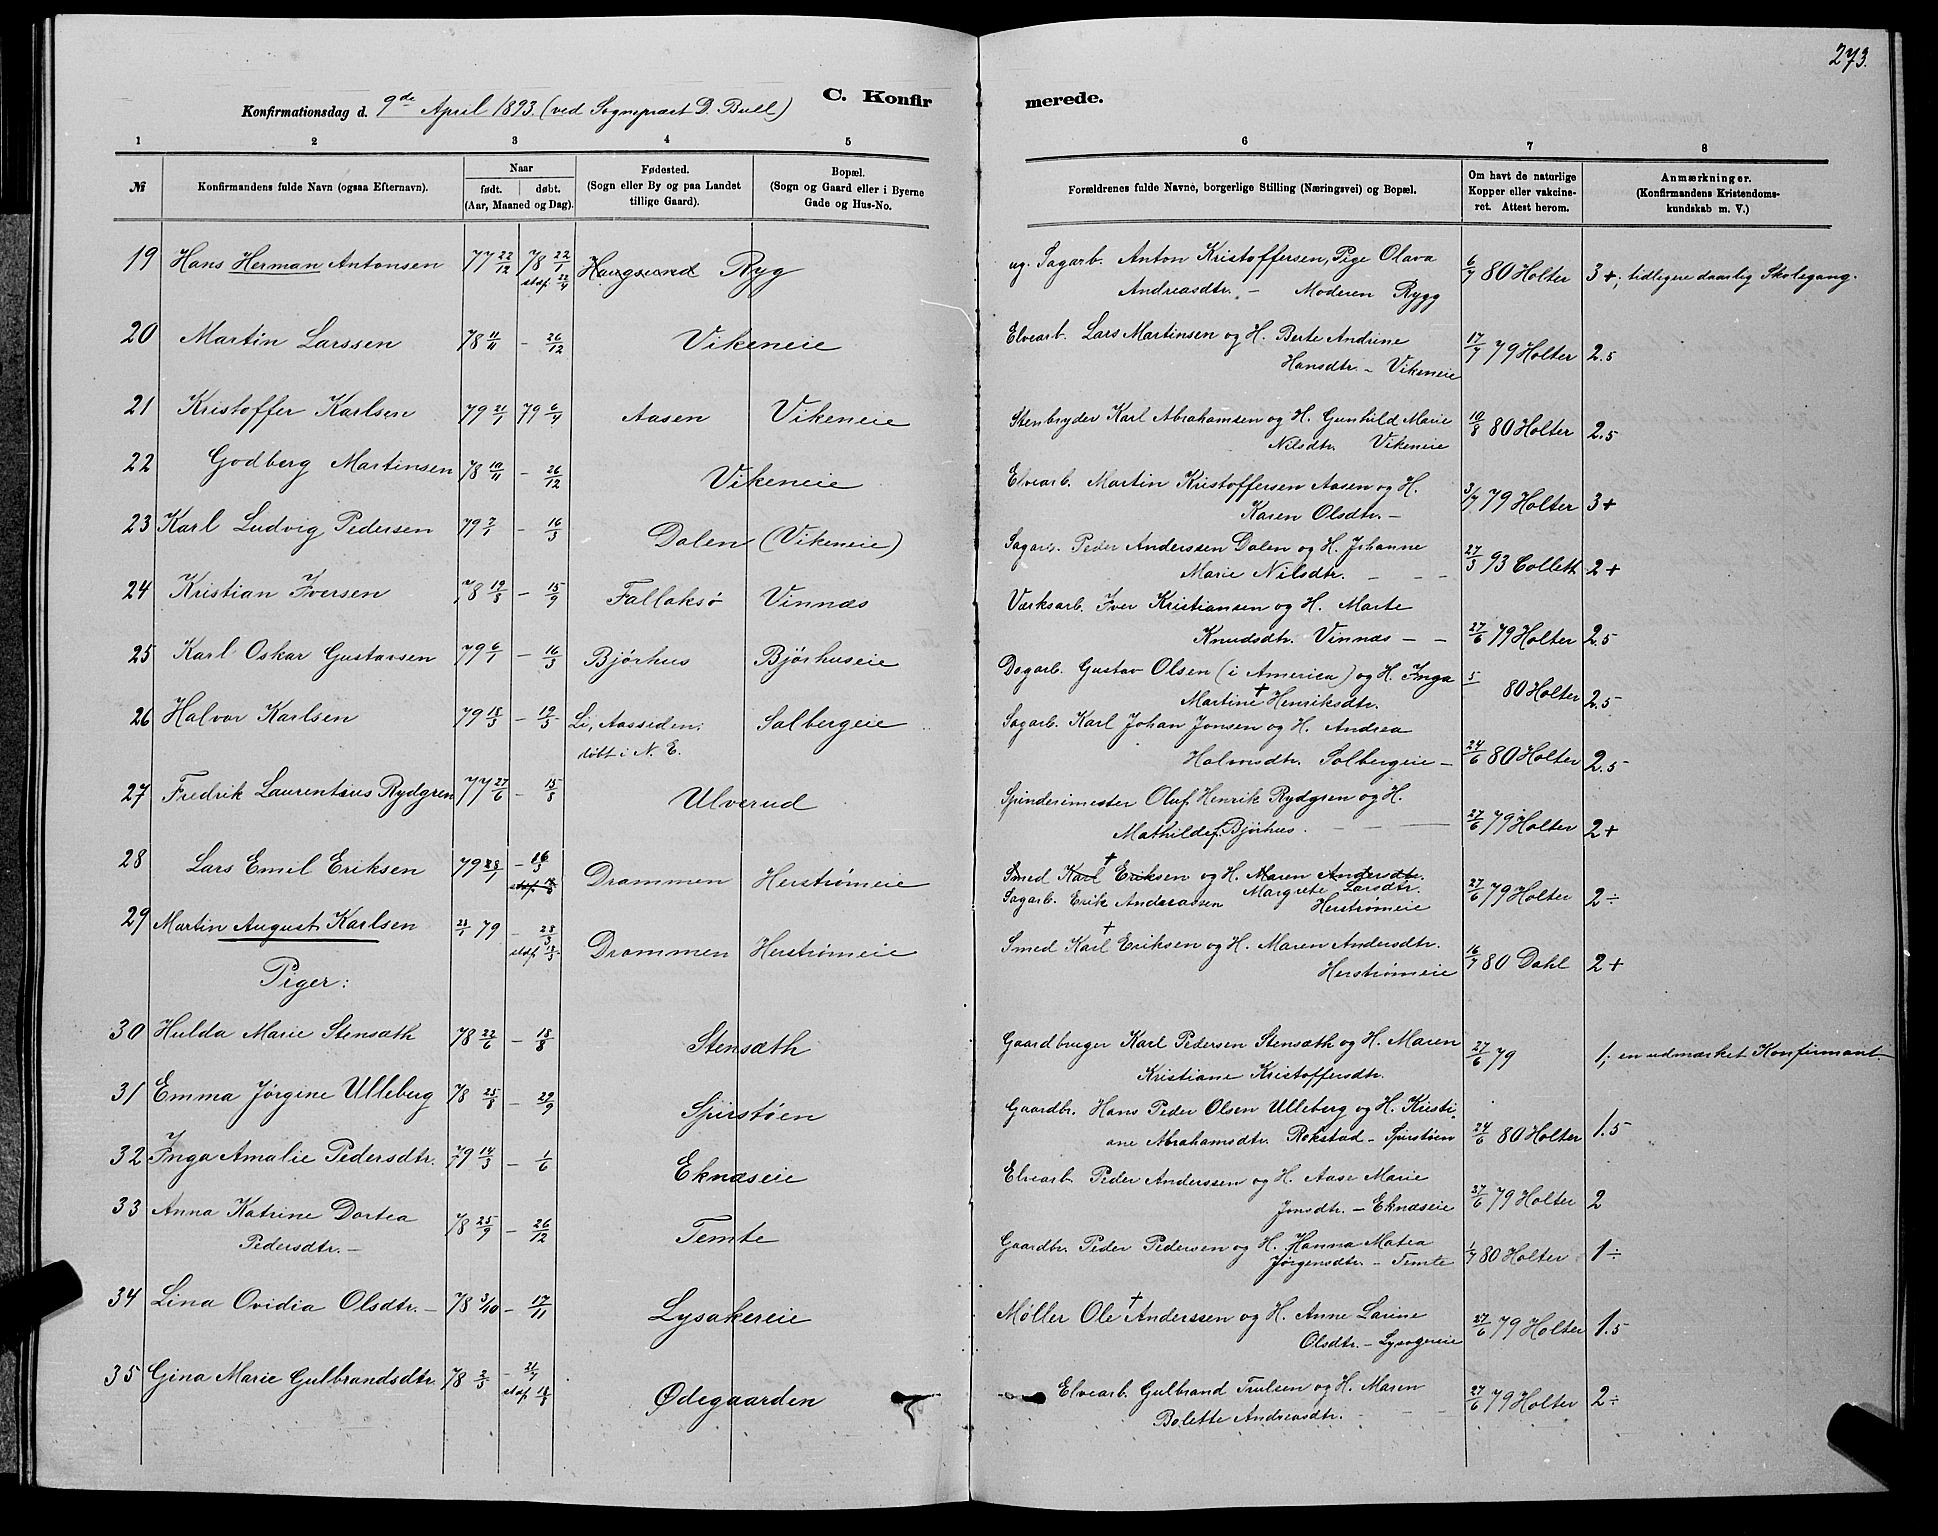 273.
Konfirmationsdag d. 9de April 1893. (ved Sognepræst D. Bull)
C. Konfirmerede.
1 2 3 4 5 6 7 8
№
Konfirmandens fulde Navn (ogsaa Efternavn).
Naar
født. døbt.
(Aar, Maaned og Dag).
Fødested.
(Sogn eller By og paa Landet
tillige Gaard).
Bopæl.
(Sogn og Gaard eller i Byerne
Gade og Hus-No.
Forældrenes fulde Navne, borgerlige Stilling (Næringsvei) og Bopæl.
Om havt de naturlige
Kopper eller vakcine-
ret. Attest herom.
Anmærkninger.
(Konfirmandens Kristendoms-
kundskab m. V.)
19 Hans Herman Antonsen 77 22/12 78 22/1 stdf. 22/4 Haugsund Ryg ug. Sagarb. Anton Kristoffersen, Pige Olava
Andreasdtr. - Moderen Rygg 6/7 80 Holter 3+; tidligere daarlig Skolegang.
20 Martin Larssen 78 11/11 - 26/12 Vikeneie Elvearb. Lars Martinsen og H. Berte Andrine
Hansdtr. - Vikeneie 17/7 79 Holter 2.5
21 Kristoffer Karlsen 79 21/1 79 6/4 Aasen Vikeneie Stenbryder Karl Abrahamsen og H. Gunhild Marie
Nilsdtr. Vikeneie 10/8 80 Holter 2.5
22 Godberg Martinsen 78 10/11 - 26/12 Vikeneie Elvearb. Martin Kristoffersen Aasen og H.
Karen Olsdtr. - 3/7 79 Holter 3+
23 Karl Ludvig Pedersen 79 7/1 - 16/3 Dalen (Vikeneie) Sagarb. Peder Anderssen Dalen og H. Johanne
Marie Nilsdtr. - - - 27/3 93 Collett 2+
24 Kristian Iversen 78 19/8 - 15/9 Fallaksø Vinnæs Værksarb. Iver Kristiansen og H. Marte
Knudsdtr. Vinnæs - - 27/6 79 Holter 2.5
25 Karl Oskar Gustavsen 79 6/1 - 16/3 Bjørhus Bjørhuseie Dagarb. Gustav Olsen (i America) og H. Inga
Martine † Henriksdtr. 5/ 80 Holter 2.5
26 Halvor Karlsen 79 15/3 - 19/5 Li, Aassiden; Solbergeie Sagarb. Karl Johan Jonsen og H. Andrea
døbt i N. E. Halvorsdtr. Solbergeie - 24/6 80 Holter 2.5
27 Fredrik Laurentius Rydgren 77 27/6 - 15/8 Ulverud Spinderimester Oluf Henrik Rydgren og H.
Mathilde f. Bjørhus. - - - 27/6 79 Holter 2+
28 Lars Emil Eriksen 79 28/1 - 16/3 Drammen Herstrømeie Smed Karl † Eriksen og H. Maren Andersdtr.
Sagarb. Erik Anderssen Margrete Larsdtr.
Herstrømeie 27/6 79 Holter 2÷
29 Martin August Karlsen 22/1 79 - 23/3 Drammen Herstrømeie Smed Karl † Eriksen og H. Maren Andersdtr.
Herstrømeie 16/7 80 Dahl 2+
Piger:
30 Hulda Marie Stensæth 78 22/6 - 18/8 Stensæth Gaardbruger Karl Pedersen Stensæth og H. Maren
Kristiane Kristoffersdtr. 27/6 79 1; en udmærket Konfirmant
31 Emma Jørgine Ulleberg 78 25/8 - 29/9 Spirstøen Gaardbr. Hans Peder Olsen Ulleberg og H. Kristi-
ane Abrahamsdtr. Rokstad - Spirstøen 24/6 80 Holter 1.5
32 Inga Amalie Pedersdtr. 79 14/3 - 1/6 Eknæseie Elvearb. Peder Anderssen og H. Aase Marie
Jonsdtr. - Eknæseie 27/6 79 Holter 2
33 Anna Katrine Dortea
Pedersdtr. - 78 25/9 - 26/12 Temte Gaardbr. Peder Pedersen og H. Hanna Matea
Jørgensdtr. - Temte 1/7 80 Holter 1÷
34 Lina Ovidia Olsdtr. - 78 3/10 - 17/11 Lysakereie Møller Ole † Anderssen og H. Anne Larine
Olsdtr. - Lysogereie 27/6 79 Holter 1.5
35 Gina Marie Gulbrandsdtr. 78 2/5 - 21/7 stdf. 18/8 Ødegaarden Elvearb. Gulbrand Trulsen og H. Maren
Bolette Andreasdtr. - - - 27/6 79 Holter 2÷